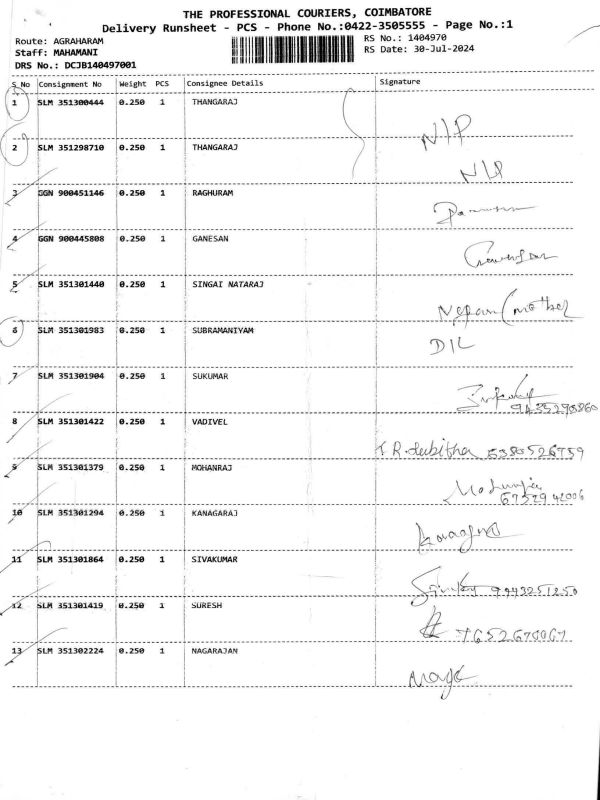 THE PROFESSIONAL COURIERS, COIMBATORE
Delivery Runsheet - PCS - Phone No.:0422-3505555 - Page No.:1
Route: AGRAHARAM
RS No.: 1404970
Staff: MAHAMANI
RS Date: 30-Jul-2024
DRS No.: DCJB140497001
S No Consignment No Weight PCS Consignee Details Signature
1 SLM 351300444 0.250 1 THANGARAJ N/P
2 SLM 351298710 0.250 1 THANGARAJ N/P
3 GGN 900451146 0.250 1 RAGHURAM
4 GGN 900445808 0.250 1 GANESAN
5 SLM 351301440 0.250 1 SINGAI NATARAJ (mother
6 SLM 351301983 0.250 1 SUBRAMANIYAM D/L
7 SLM 351301904 0.250 1 SUKUMAR
9435290860
8 SLM 351301422 0.250 1 VADIVEL
6380526759
9 SLM 351301379 0.250 1 MOHANRAJ
10 SLM 351301294 0.250 1 KANAGARAJ
11 SLM 351301864 0.250 1 SIVAKUMAR
9443251250
12 SLM 351301419 0.250 1 SURESH
7652670067
13 SLM 351302224 0.250 1 NAGARAJAN